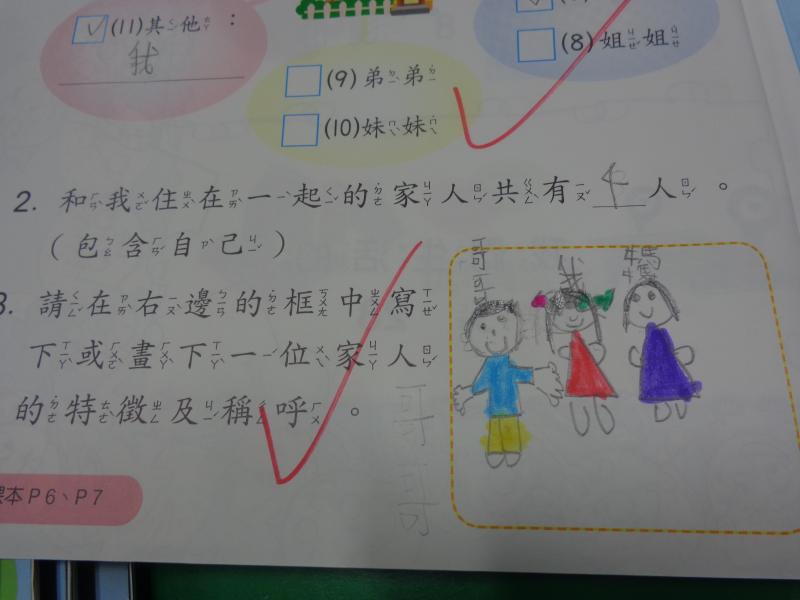 (11)其他：
我
(8)姐姐
(9)弟弟
(10)妹妹
2. 和我住在一起的家人共有4人。
（包含自己）
3. 請在右邊的框中寫
下或畫下一位家人
的特徵及稱呼。
哥哥
我
媽媽
哥哥
課本P6、P7